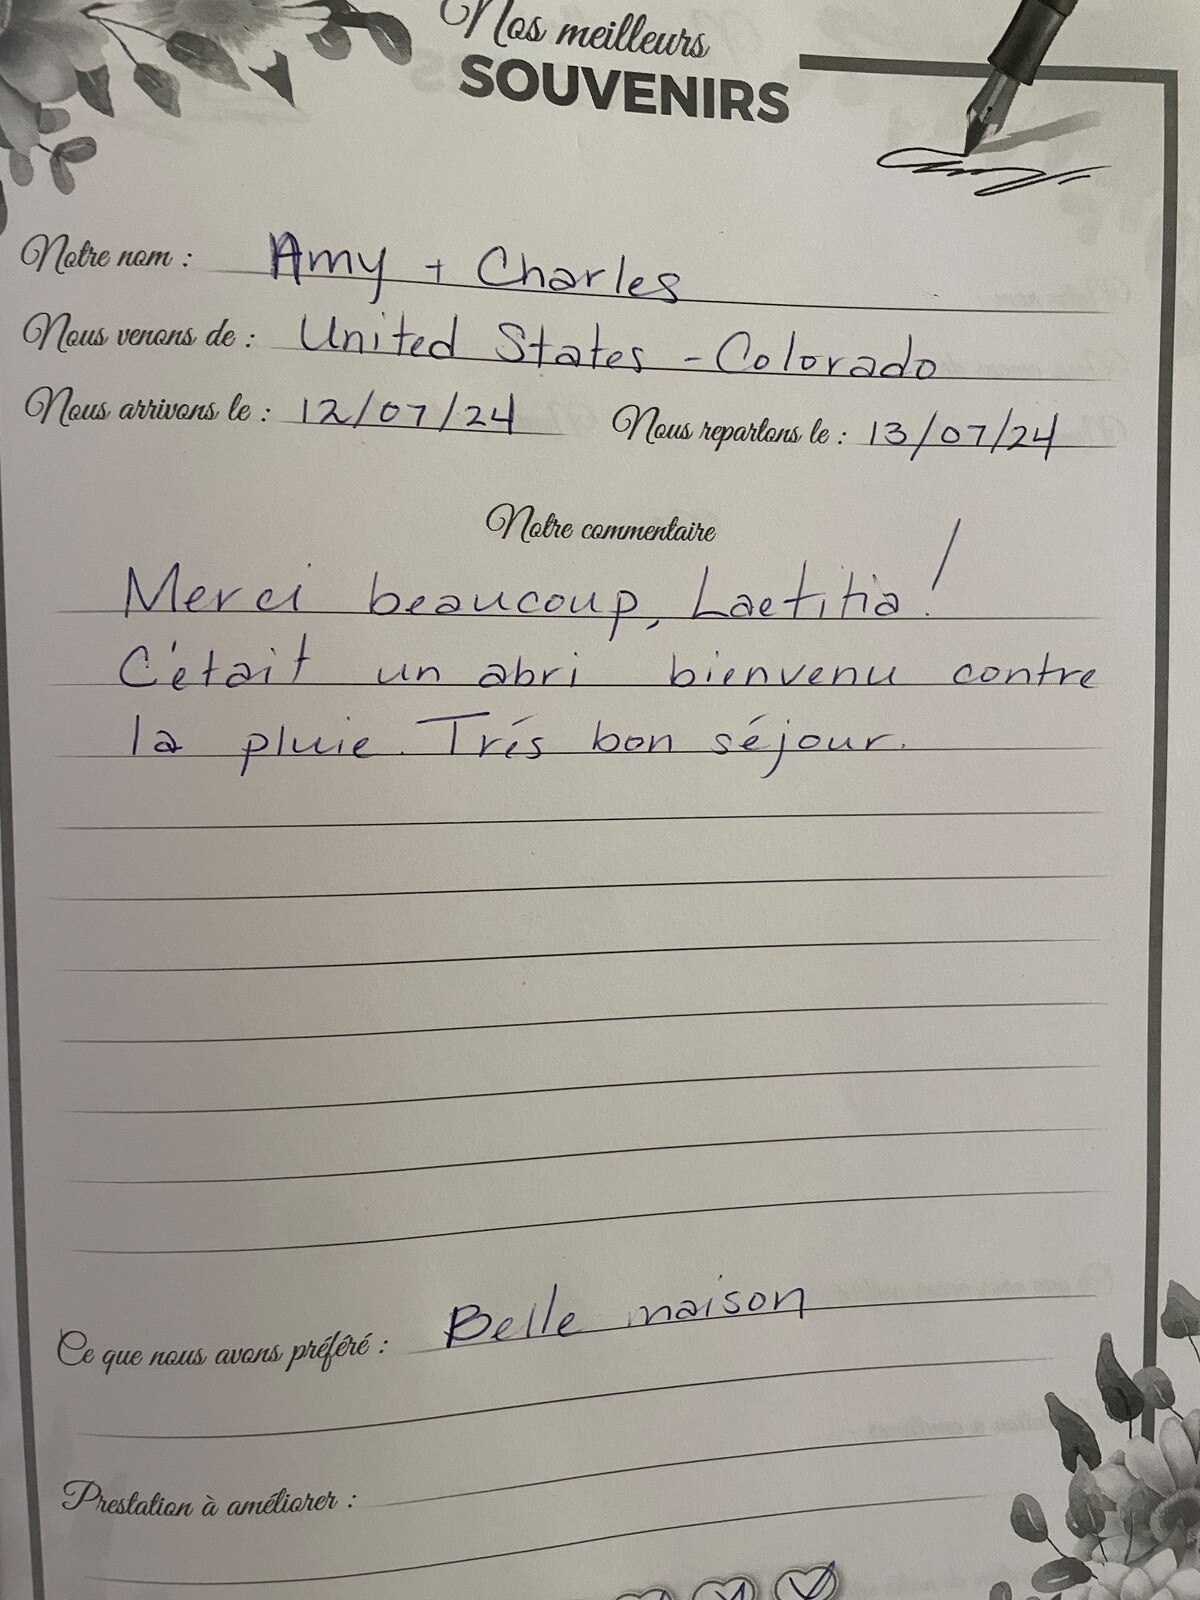 Nos meilleurs
SOUVENIRS
Notre nom : Amy + Charles
Nous venons de : United States - Colorado
Nous arrivons le : 12/07/24 Nous repartons le : 13/07/24
Notre commentaire
Merci beaucoup, Laetitia!
C'était un abri bienvenu contre
la pluie. Trés bon séjour.
Ce que nous avons préféré : Belle maison
Prestation à améliorer :